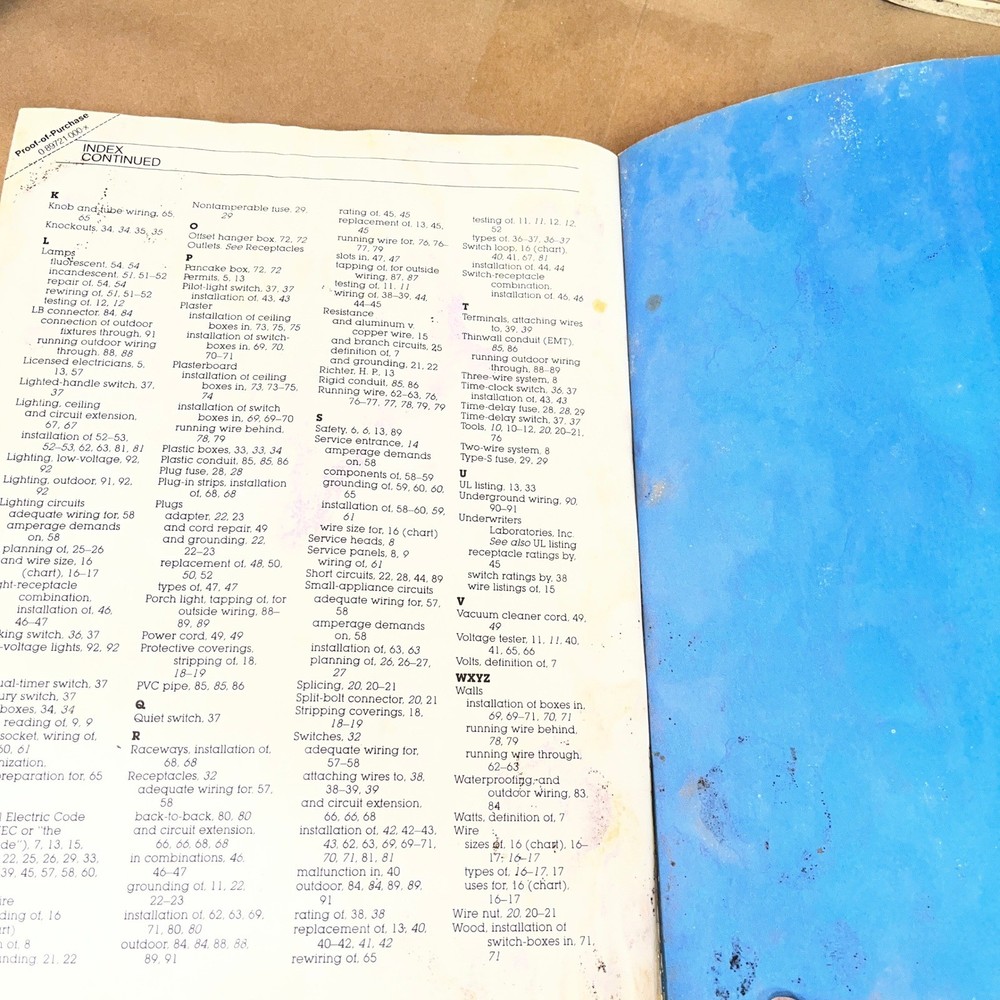 Proof-of-Purchase
0-89721 000-x
INDEX
CONTINUED
K
Knob and tube wiring, 65,
65
Knockouts, 34, 34, 35, 35
L
Lamps
fluorescent, 54, 54
incandescent, 51, 51–52
repair of, 54, 54
rewiring of, 51, 51–52
testing of, 12, 12
LB connector, 84, 84
connection of outdoor
fixtures through, 91
running outdoor wiring
through, 88, 88
Licensed electricians, 5,
13, 57
Lighted-handle switch, 37,
37
Lighting, ceiling
and circuit extension,
67, 67
installation of 52–53,
52–53, 62, 63, 81, 81
Lighting, low-voltage, 92,
92
Lighting, outdoor, 91, 92,
92
Lighting circuits
adequate wiring for, 58
amperage demands
on, 58
planning of, 25–26
and wire size, 16
(chart), 16–17
ght-receptacle
combination,
installation of, 46,
46–47
king switch, 36, 37
-voltage lights, 92, 92
ual-timer switch, 37
ury switch, 37
boxes, 34, 34
reading of, 9, 9
socket, wiring of,
60, 61
nization,
reparation for, 65
l Electric Code
EC or "the
de"), 7, 13, 15,
22, 25, 26, 29, 33,
39, 45, 57, 58, 60,
ire
ding of, 16
rt)
of, 8
nding 21, 22
Nontamperable fuse, 29,
29
O
Offset hanger box, 72, 72
Outlets. See Receptacles
P
Pancake box, 72, 72
Permits, 5, 13
Pilot-light switch, 37, 37
installation of, 43, 43
Plaster
installation of ceiling
boxes in, 73, 75, 75
installation of switch-
boxes in, 69, 70,
70–71
Plasterboard
installation of ceiling
boxes in, 73, 73–75,
74
installation of switch
boxes in, 69, 69–70
running wire behind,
78, 79
Plastic boxes, 33, 33, 34
Plastic conduit, 85, 85, 86
Plug fuse, 28, 28
Plug-in strips, installation
of, 68, 68
Plugs
adapter, 22, 23
and cord repair, 49
and grounding, 22,
22–23
replacement of, 48, 50,
50, 52
types of, 47, 47
Porch light, tapping of, for
outside wiring, 88–
89, 89
Power cord, 49, 49
Protective coverings,
stripping of, 18,
18–19
PVC pipe, 85, 85, 86
Q
Quiet switch, 37
R
Raceways, installation of,
68, 68
Receptacles, 32
adequate wiring for, 57,
58
back-to-back, 80, 80
and circuit extension,
66, 66, 68, 68
in combinations, 46,
46–47
grounding of, 11, 22,
22–23
installation of, 62, 63, 69,
71, 80, 80
outdoor, 84, 84, 88, 88,
89, 91
rating of, 45, 45
replacement of, 13, 45,
45
running wire for, 76, 76–
77, 79
slots in, 47, 47
tapping of, for outside
wiring, 87, 87
testing of, 11, 11
wiring of, 38–39, 44,
44–45
Resistance
and aluminum v.
copper wire, 15
and branch circuits, 25
definition of, 7
and grounding, 21, 22
Richter, H. P., 13
Rigid conduit, 85, 86
Running wire, 62–63, 76,
76–77, 77, 78, 79, 79
S
Safety, 6, 6, 13, 89
Service entrance, 14
amperage demands
on, 58
components of, 58–59
grounding of, 59, 60, 60,
65
installation of, 58–60, 59,
61
wire size for, 16 (chart)
Service heads, 8
Service panels, 8, 9
wiring of, 61
Short circuits, 22, 28, 44, 89
Small-appliance circuits
adequate wiring for, 57,
58
amperage demands
on, 58
installation of, 63, 63
planning of, 26, 26–27,
27
Splicing, 20, 20–21
Split-bolt connector, 20, 21
Stripping coverings, 18,
18–19
Switches, 32
adequate wiring for,
57–58
attaching wires to, 38,
38–39, 39
and circuit extension,
66, 66, 68
installation of, 42, 42–43,
43, 62, 63, 69, 69–71,
70, 71, 81, 81
malfunction in, 40
outdoor, 84, 84, 89, 89,
91
rating of, 38, 38
replacement of, 13, 40,
40–42, 41, 42
rewiring of, 65
testing of, 11, 11, 12, 12,
52
types of, 36–37, 36–37
Switch loop, 16 (chart),
40, 41, 67, 81
installation of, 44, 44
Switch-receptacle
combination,
installation of, 46, 46
T
Terminals, attaching wires
to, 39, 39
Thinwall conduit (EMT),
85, 86
running outdoor wiring
through, 88–89
Three-wire system, 8
Time-clock switch, 36, 37
installation of, 43, 43
Time-delay fuse, 28, 28, 29
Time-delay switch, 37, 37
Tools, 10, 10–12, 20, 20–21,
76
Two-wire system, 8
Type-S fuse, 29, 29
U
UL listing, 13, 33
Underground wiring, 90,
90–91
Underwriters
Laboratories, Inc.
See also UL listing
receptacle ratings by,
45
switch ratings by, 38
wire listings of, 15
V
Vacuum cleaner cord, 49,
49
Voltage tester, 11, 11, 40,
41, 65, 66
Volts, definition of, 7
WXYZ
Walls
installation of boxes in,
69, 69–71, 70, 71
running wire behind,
78, 79
running wire through,
62–63
Waterproofing, and
outdoor wiring, 83,
84
Watts, definition of, 7
Wire
sizes of, 16 (chart), 16–
17, 16–17
types of, 16–17, 17
uses for, 16 (chart),
16–17
Wire nut, 20, 20–21
Wood, installation of
switch-boxes in, 71,
71